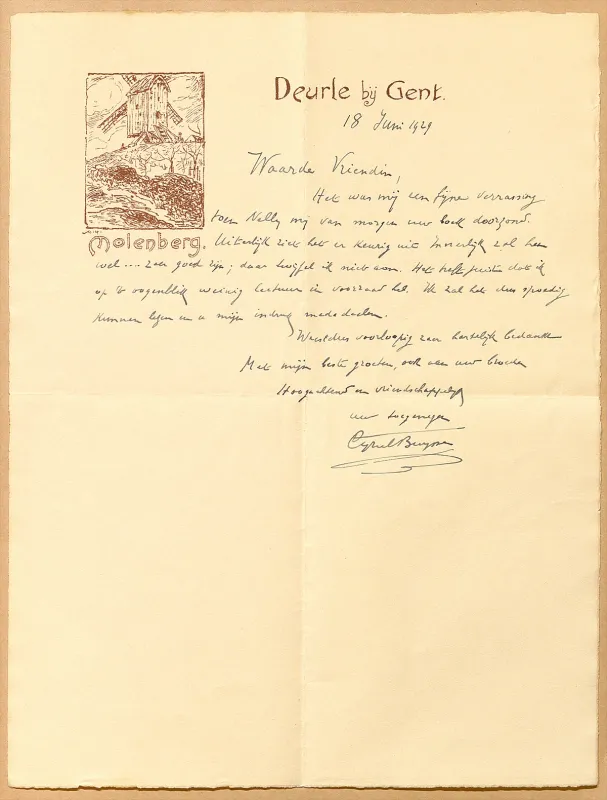 Deurle bij Gent.
18 Juni 1929
Waarde Vriendin,
Het was mij een fijne verrassing
toen Nelly mij van morgen uw boek doorzond.
Molenberg.
Uiterlijk ziet het er keurig uit. Innerlijk zal het
wel .... zeer goed zijn; daar twijfel ik niet aan. Het treft juist dat ik
op 't oogenblik weinig lectuur in voorraad heb. Ik zal het dus spoedig
kunnen lezen en u mijn indruk mededeelen.
Wees dus voorloopig zeer hartelijk bedankt
Met mijn beste groeten, ook aan uw broeder
Hoogachtend en vriendschappelijk
uw toegenegen
Cyriel Buysse